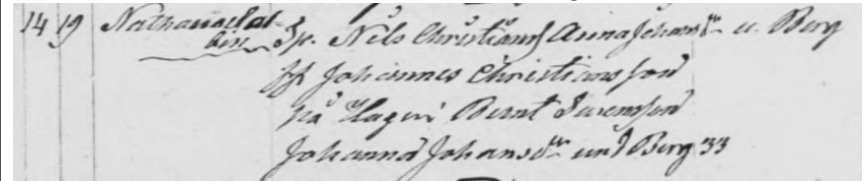 14 19 Nathanael al-
bin Sp. Nils Christians Anna Johans dr u. Berg
ff Johannes Christiansson
på Hagen Bernt Svensson
Johanna Johans dtr und Berg 33